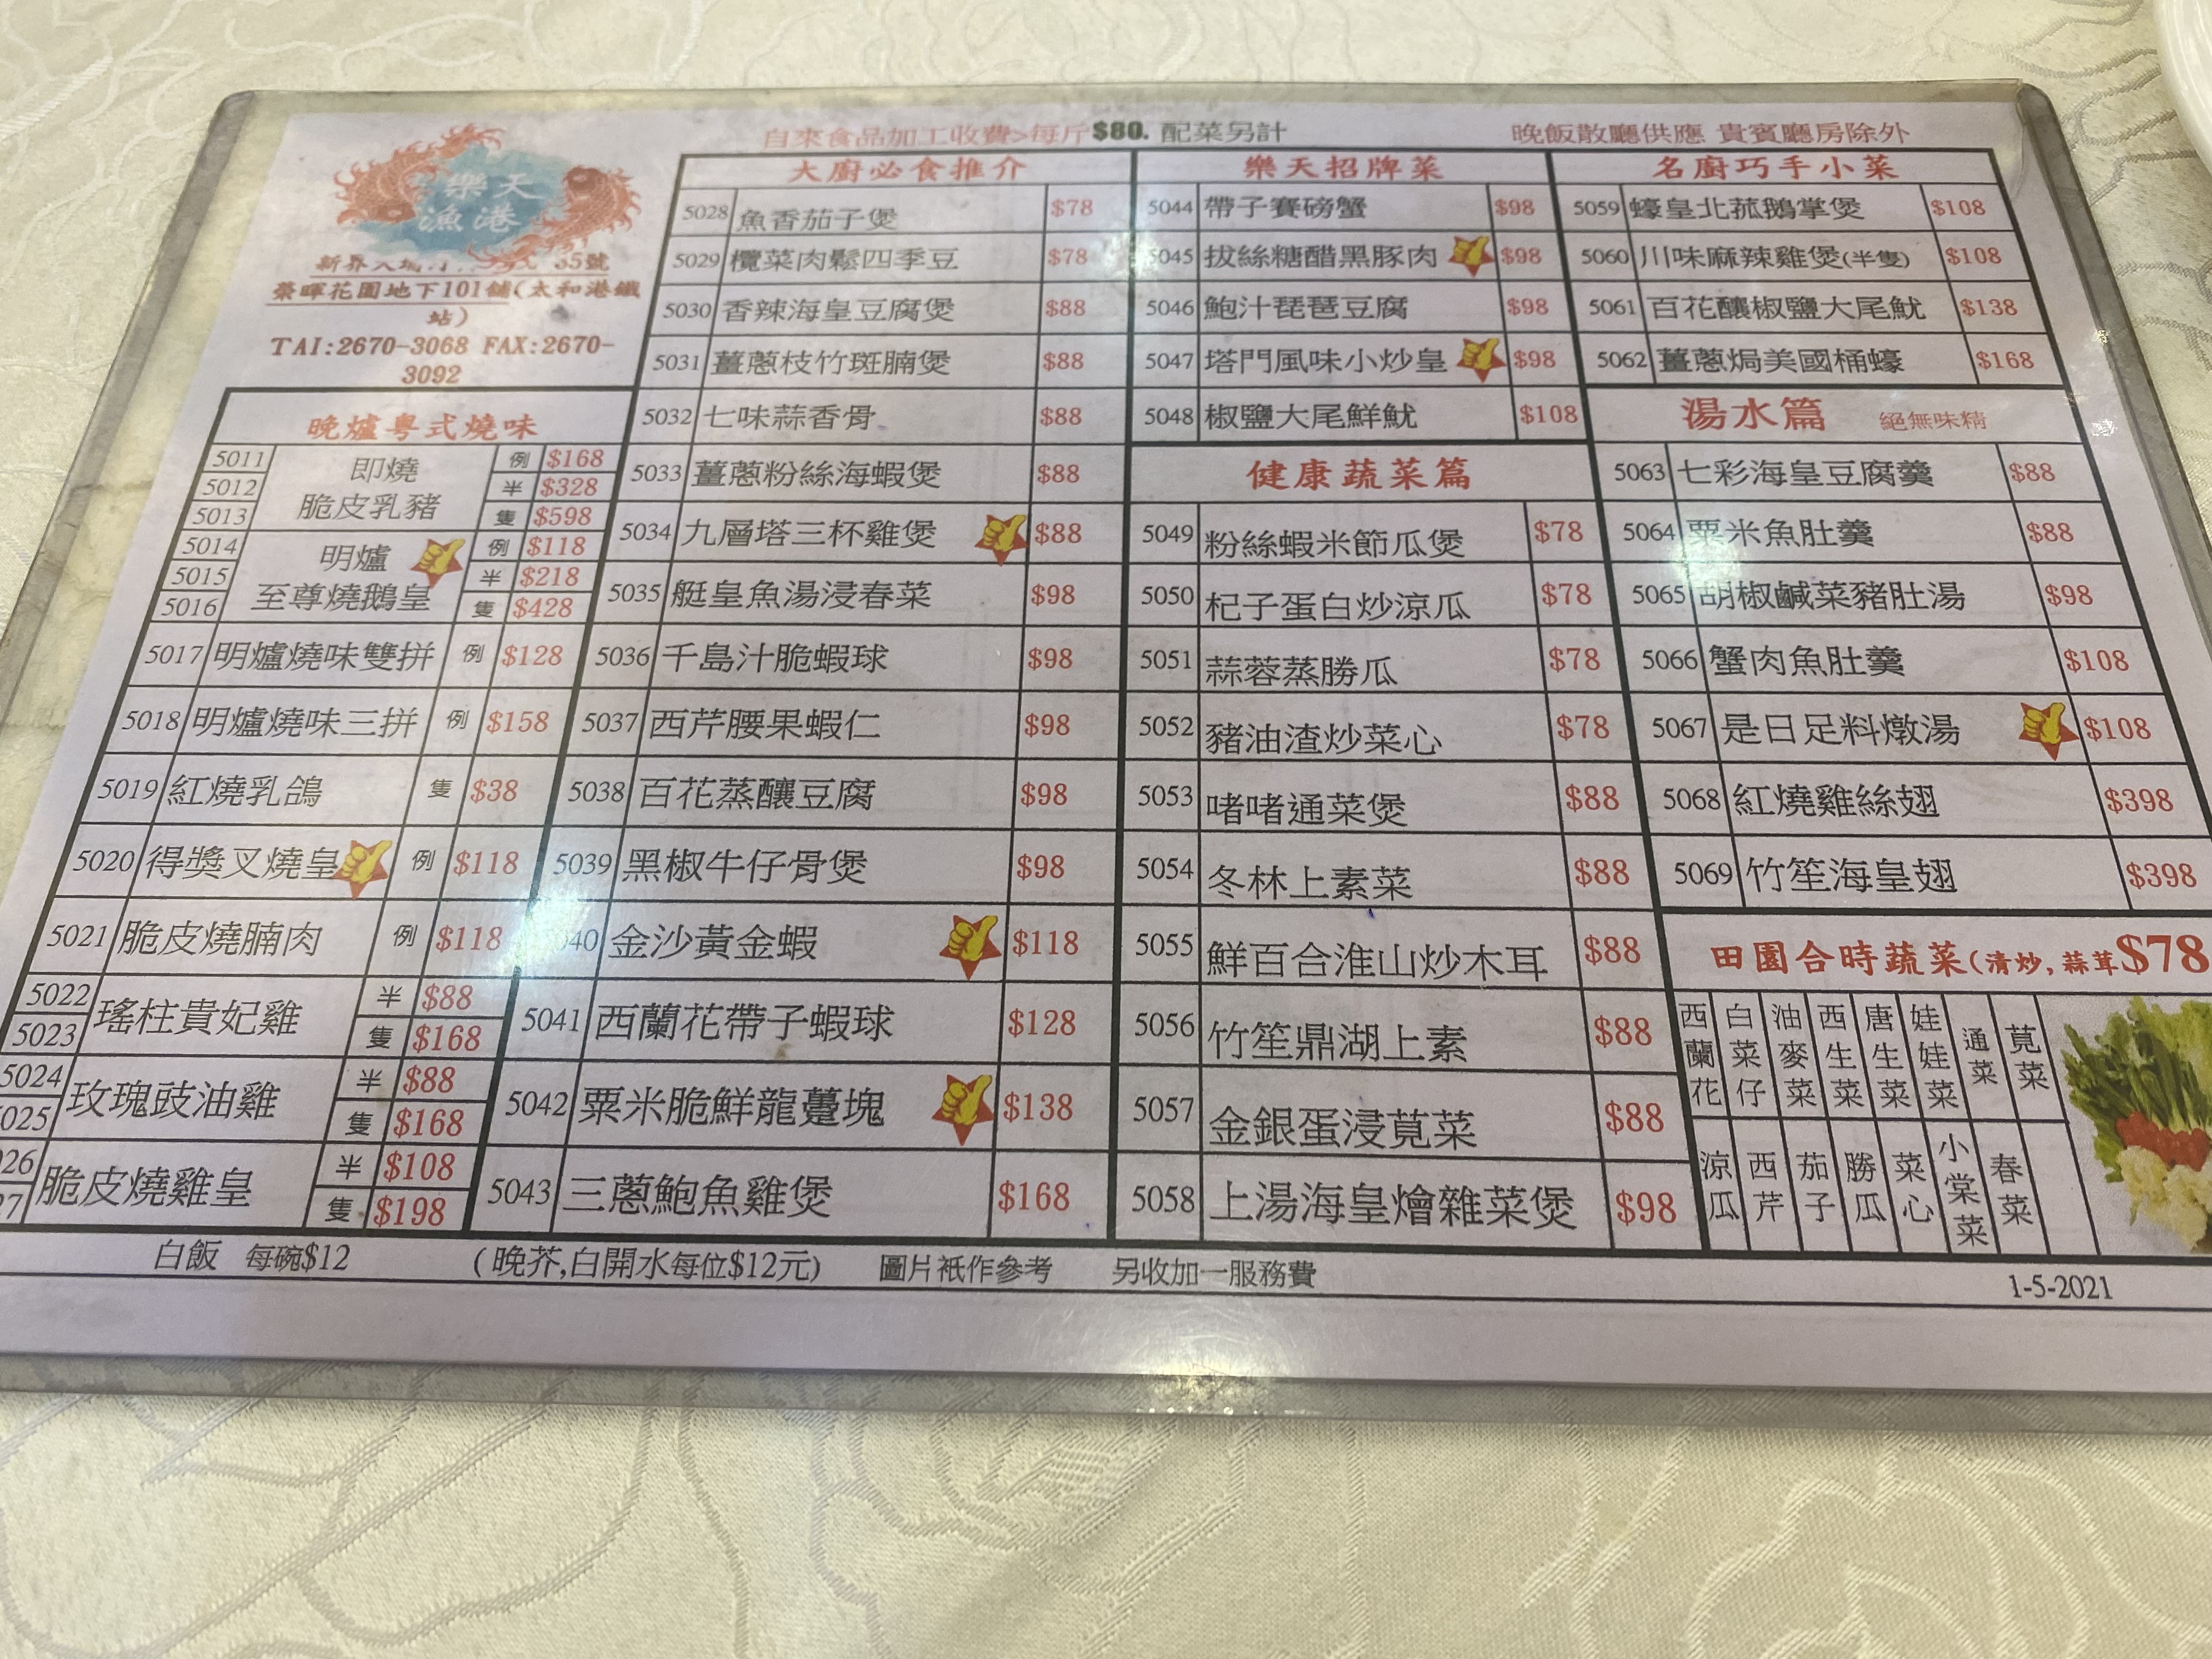 自來食品加工收費>每斤$80. 配菜另計
晚飯散廳供應 貴賓廳房除外
樂天
漁港
新界大埔 35號
榮暉花園地下101舖(太和港鐵
站)
TAI:2670-3068 FAX:2670-
3092
晚爐粵式燒味
5011 即燒 例 $168
5012 脆皮乳豬 半 $328
5013 隻 $598
5014 明爐 例 $118
5015 至尊燒鵝皇 半 $218
5016 隻 $428
5017 明爐燒味雙拼 例 $128
5018 明爐燒味三拼 例 $158
5019 紅燒乳鴿 隻 $38
5020 得獎叉燒皇 例 $118
5021 脆皮燒腩肉 例 $118
5022 瑤柱貴妃雞 半 $88
5023 隻 $168
5024 玫瑰豉油雞 半 $88
025 隻 $168
26 脆皮燒雞皇 半 $108
27 隻 $198
大廚必食推介
5028 魚香茄子煲 $78
5029 欖菜肉鬆四季豆 $78
5030 香辣海皇豆腐煲 $88
5031 薑蔥枝竹斑腩煲 $88
5032 七味蒜香骨 $88
5033 薑蔥粉絲海蝦煲 $88
5034 九層塔三杯雞煲 $88
5035 艇皇魚湯浸春菜 $98
5036 千島汁脆蝦球 $98
5037 西芹腰果蝦仁 $98
5038 百花蒸釀豆腐 $98
5039 黑椒牛仔骨煲 $98
040 金沙黃金蝦 $118
5041 西蘭花帶子蝦球 $128
5042 粟米脆鮮龍躉塊 $138
5043 三蔥鮑魚雞煲 $168
樂天招牌菜
5044 帶子賽磅蟹 $98
5045 拔絲糖醋黑豚肉 $98
5046 鮑汁琵琶豆腐 $98
5047 塔門風味小炒皇 $98
5048 椒鹽大尾鮮魷 $108
健康蔬菜篇
5049 粉絲蝦米節瓜煲 $78
5050 杞子蛋白炒涼瓜 $78
5051 蒜蓉蒸勝瓜 $78
5052 豬油渣炒菜心 $78
5053 啫啫通菜煲 $88
5054 冬林上素菜 $88
5055 鮮百合淮山炒木耳 $88
5056 竹笙鼎湖上素 $88
5057 金銀蛋浸莧菜 $88
5058 上湯海皇燴雜菜煲 $98
名廚巧手小菜
5059 蠔皇北菰鵝掌煲 $108
5060 川味麻辣雞煲(半隻) $108
5061 百花釀椒鹽大尾魷 $138
5062 薑蔥焗美國桶蠔 $168
湯水篇 絕無味精
5063 七彩海皇豆腐羹 $88
5064 粟米魚肚羹 $88
5065 胡椒鹹菜豬肚湯 $98
5066 蟹肉魚肚羹 $108
5067 是日足料燉湯 $108
5068 紅燒雞絲翅 $398
5069 竹笙海皇翅 $398
田園合時蔬菜(清炒,蒜茸$78
西蘭花
白菜仔
油麥菜
西生菜
唐生菜
娃娃菜
通菜
莧菜
涼瓜
西芹
茄子
勝瓜
菜心
小棠菜
春菜
白飯 每碗$12 (晚芥,白開水每位$12元) 圖片衹作參考 另收加一服務費
1-5-2021